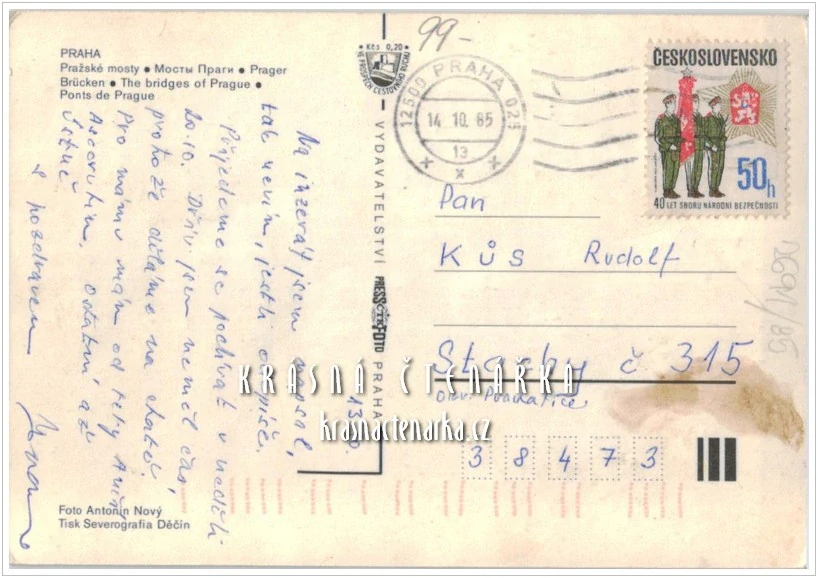 PRAHA
Pražské mosty ● Мосты Праги ● Prager
Brücken ● The bridges of Prague ●
Ponts de Prague
Kčs 0,20
VE PROSPĚCH CESTOVNÍHO RUCHU
99-
12500 PRAHA 025
14.10.85
13
ČESKOSLOVENSKO
50h
40 LET SBORU NÁRODNÍ BEZPEČNOSTI
Pan
KŮS Rudolf
Stachy č 315
okr. Prachatice
38473
VYDAVATELSTVÍ PRESSFOTO PRAHA
ČTK
13.10.
Na inzerát jsem napsal,
tak nevím, jestli odepíše.
Přijedeme se podívat v neděli
20.10. Dřív jsem neměl čas,
protože děláme na chatě.
Pro mámu mám od tety Aniny
Ascorutin. Ostatní až
ústně.
S pozdravem
KRÁSNÁ ČTENÁŘKA
krasnactenarka.cz
Foto Antonín Nový
Tisk Severografia Děčín